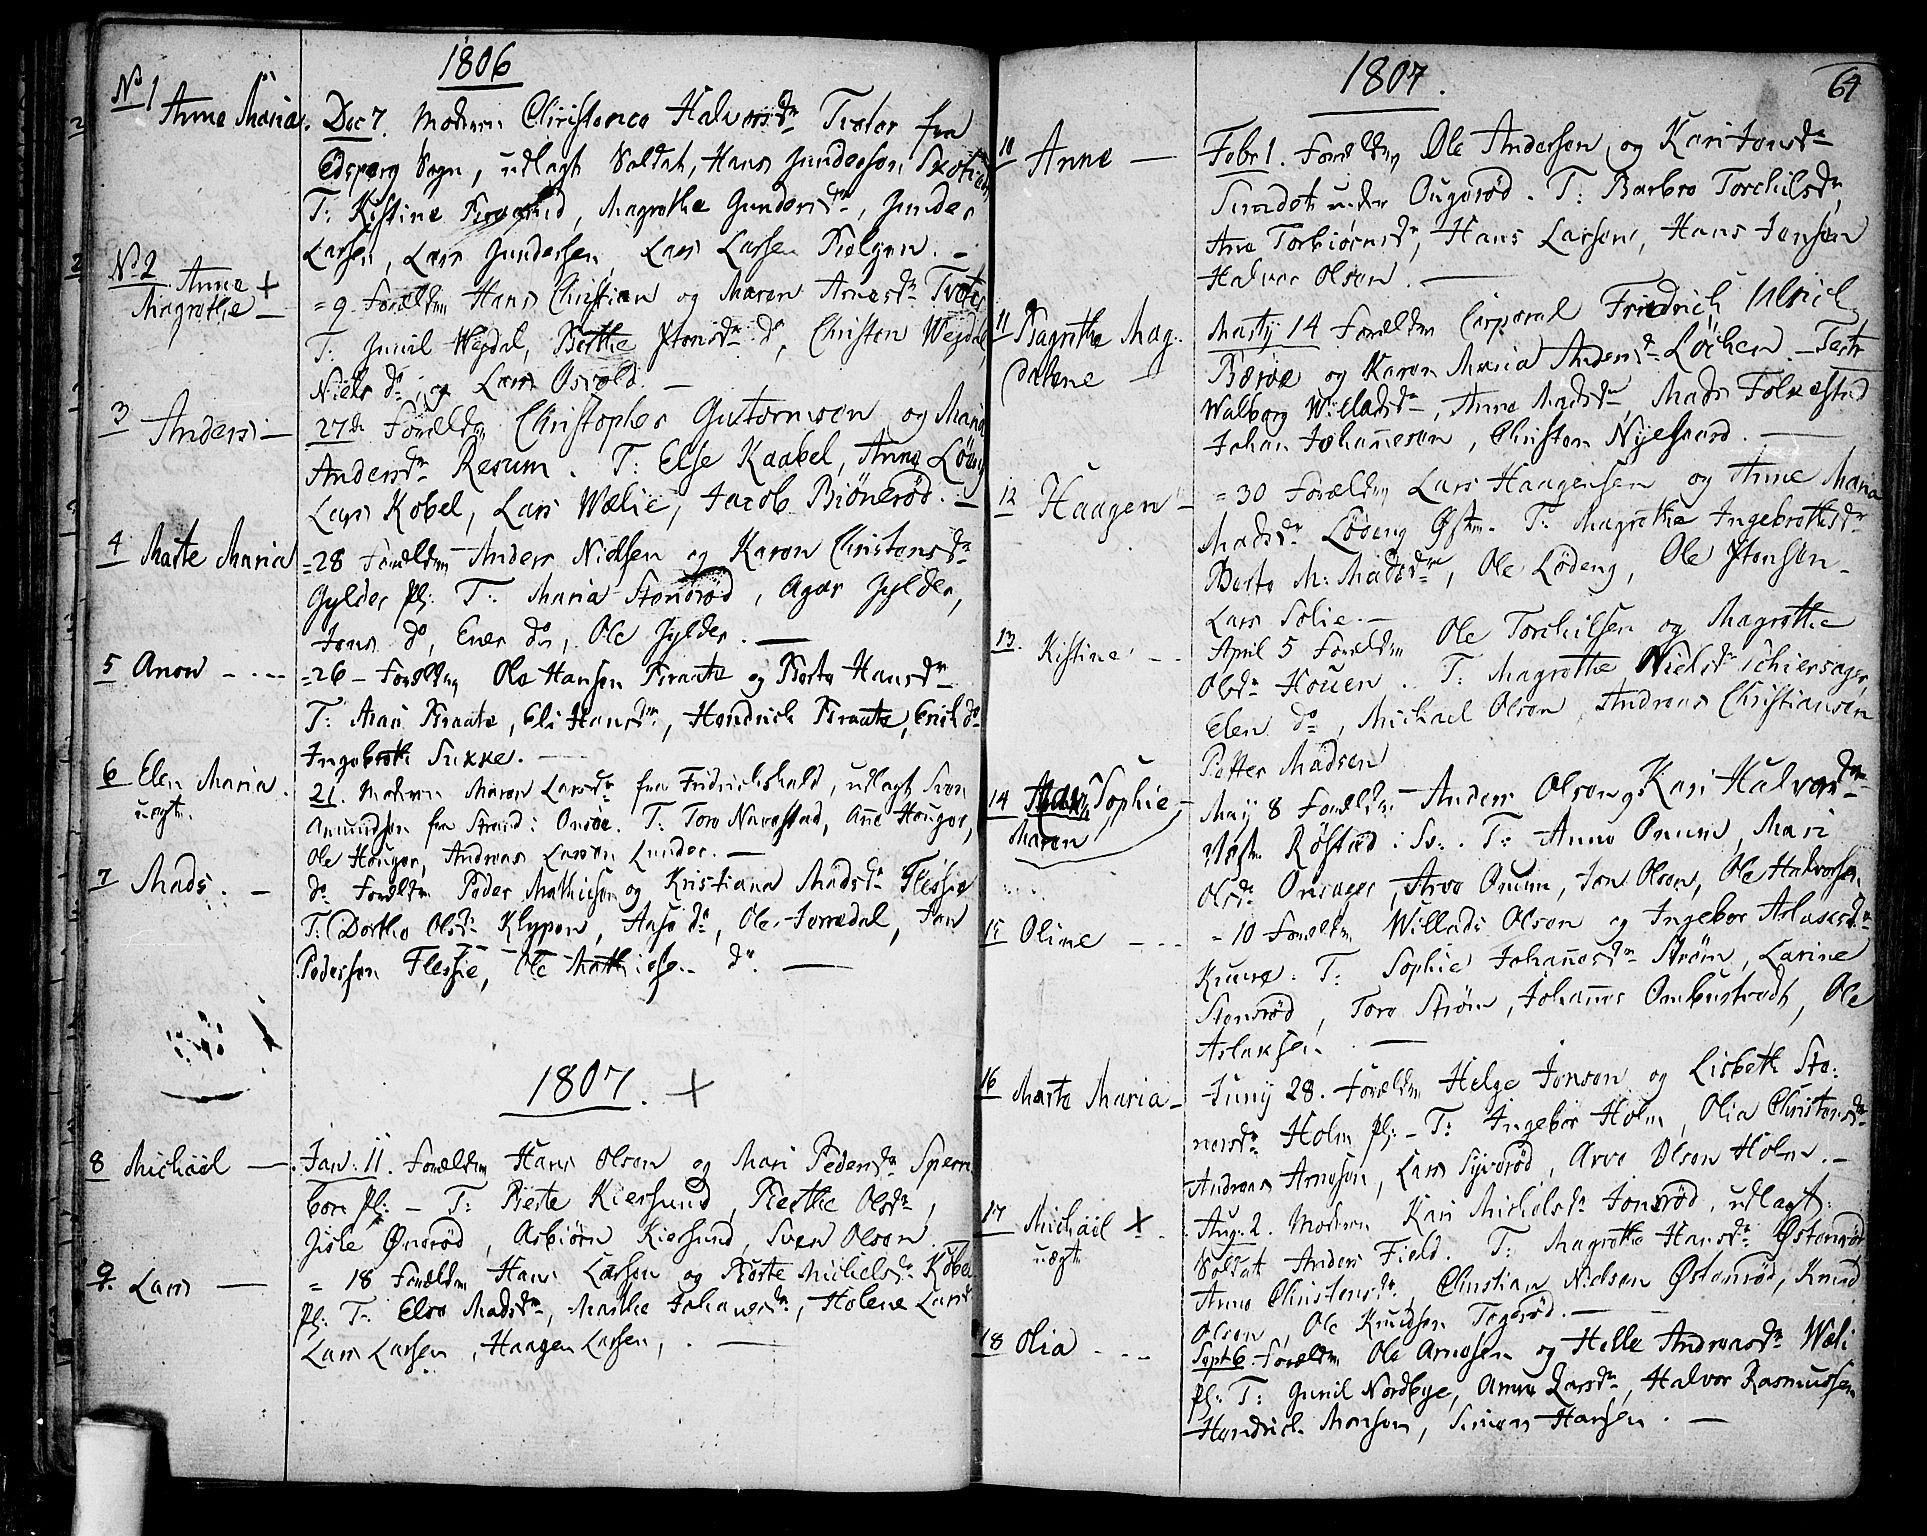 1806
No 1 Anne Maria. Dec 7. Moderen Christence Halvorsdr Tveter fra
Edsperg Sogn, udlagt Soldat, Hans Gundersen
T: Kistine, Magrethe Gundersdr, Gunder
Larsen, Lars Gundersen, Lars Larsen
No 2 Anne + Magrethe — = 9 Forældre Hans Christian og Maren Arnesdr Tveter
T: Gunil Wegdal, Berthe do, Christen Wegdal
Niels do, og Lars Osvold —
3 Anders — 27de Forældre Christopher Gutormsen og Maria
Andersdr Resum. T: Else Kaabel, Anne Löeng
Lars Kobel, Lars Wælie, Jacob Biönerød. —
4 Marte Maria = 28 Forældre Anders Nielsen og Karen Christensdr
Gylder pl: T: Maria Stensrød, Agar Gylder,
Jens do, Ener do, Ole Gylder. —
5 Anon - - - = 26 - Forældre Ole Hansen Braate og Berte Hansdr
T: Mari Braate, Eli Hansdr, Hendrich Braate, Erich do
Ingebreth Sukke. —
6 Elen Maria. uægt. 21. Moderen Maren Larsdr fra Fridrichshald, udlagt Sven
Amundsen fra Strand i Onsöe. T: Tore Navestad, Ane Houger,
Ole Houger, Andreas Larsen Lunder. —
7 Mads. — do Forældre Peder Mathiesen og Kristiana Madsdr Flessie
T: Dorthe Olsdr Klypen, Aase do, Ole Jerredal, Jan
Pedersen Flessie, Ole Mathiese. do. —
1807. +
8 Michäel — Jan: 11. Forældre Hans Olsen og Mari Pedersdr Spern
boren pl: — T: Berte Kiersund, Berthe Olsdr,
Gisle Ønsrød, Asbiörn Kiersund, Sven Olsen.
9. Lars — = 18 Forældre Hans Larsen og Berte Michelsdr Kobel
pl: T: Else Madsdr, Marthe Johanesdr, Helene Larsdr
Lars Larsen, Haagen Larsen, . —
1807. 64
10 Anne — Febr 1. Forældre Ole Andersen og Kari Jensdr
Sundet under Ougerød. T: Barbro Torchilsdr,
Ane Torbiörnsdr, Hans Larsen, Hans Jensen
Halvor Olsen. —
11 Magrethe Mag dalene — Martij 14 Forældre Corporal Friedrich Ulrich
Beröe og Karen Maria Andersdr Löcken. — Test:
Walborg Willadsdr, Anne Madsdr, Mads Folkestad
Johan Johannesen, Christen Nyegaard. —
12 Haagen — = 30 Forældre Lars Haagensen og Anne Maria
Madsdr Lödeng Østre. T: Magrethe Ingebrethsdr
Berte M: Madsdr, Ole Lödeng, Ole Stensen
Lars Solie. —
13. Kistine - - April 5 Forældre Ole Torchilsen og Magrethe
Olsdr Houen. T: Magrethe Nielsdr Schiersager,
Elen do, Michael Olsen, Andreas Christiansen
Petter Madsen
14 Sophie — Maren May 8 Forældre Anders Olsen og Kari Halvorsdr
Röstad i Sv: . T: Anne Onum, Mari
Olsdr Onsager, Arve Onum, Jon Olsen, Ole Halvorsen.
15 Oline - - - = 10 Forældre Willads Olsen og Ingebor Aslaksdr
T: Sophie Johannesdr Ström, Larine
Stensrød, Tore Ström, Johannes Ombustvedt, Ole
Aslaksen. —
16 Marte Maria — Junij 28. Forældre Helge Jonsen og Lisbeth Ste-
nersdr Holm pl: — T: Ingebor Holm, Olia Christensdr
Andreas Arnesen, Lars Syverød, Arve Olsen Holm. —
17 Michäel + uægt Aug. 2. Moderen Kari Michelsdr Jonsrød, udlagt:
Soldat Anders Field. T: Magrethe Hansdr Østenrød
Anne Christensdr, Christian Nielsen Østenrød, Knud
Olsen, Ole Knudsen Togerød. —
18 Olia - - - Sept 6 Forældre Ole Arnesen og Helle Andreasdr Wæli
pl: T: Gunil Nordbye, Anne Larsdr, Halvor Rasmussen
Hendrich Monsen, Simon Hansen. —